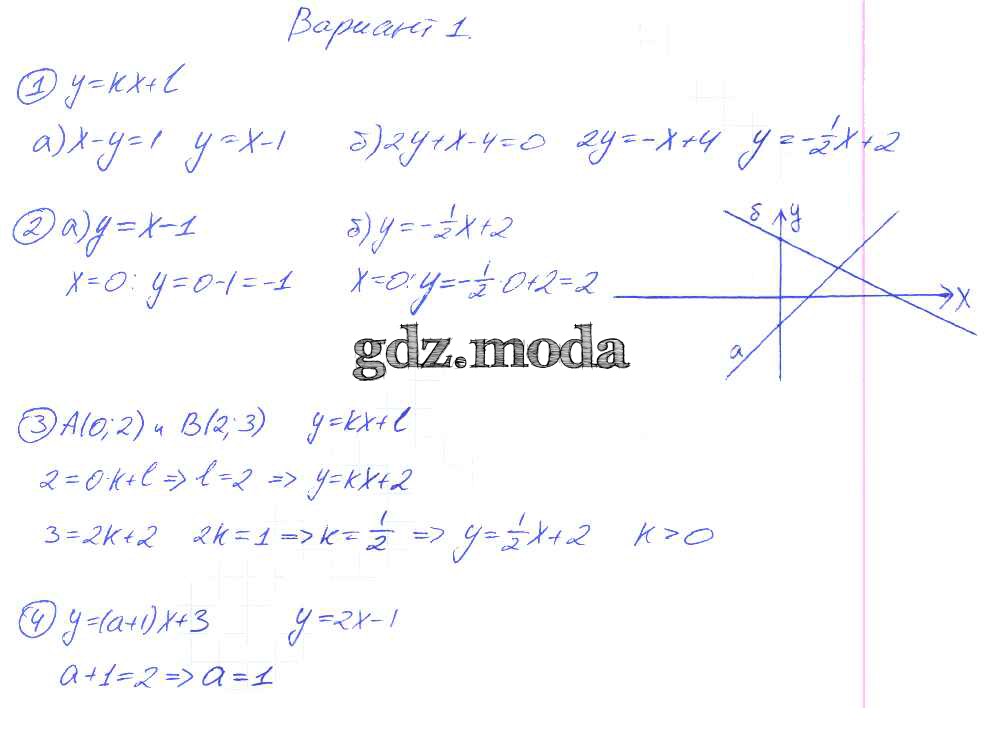 Вариант 1.
① y=kx+l
а) x-y=1 y=x-1 б) 2y+x-4=0 2y=-x+4 y=-1/2x+2
② а) y=x-1 б) y=-1/2x+2
x=0: y=0-1=-1 x=0: y=-1/2·0+2=2
б y
x
а
gdz.moda
③ A(0;2) и B(2;3) y=kx+l
2=0·k+l => l=2 => y=kx+2
3=2k+2 2k=1 => k=1/2 => y=1/2x+2 k>0
④ y=(a+1)x+3 y=2x-1
a+1=2 => a=1